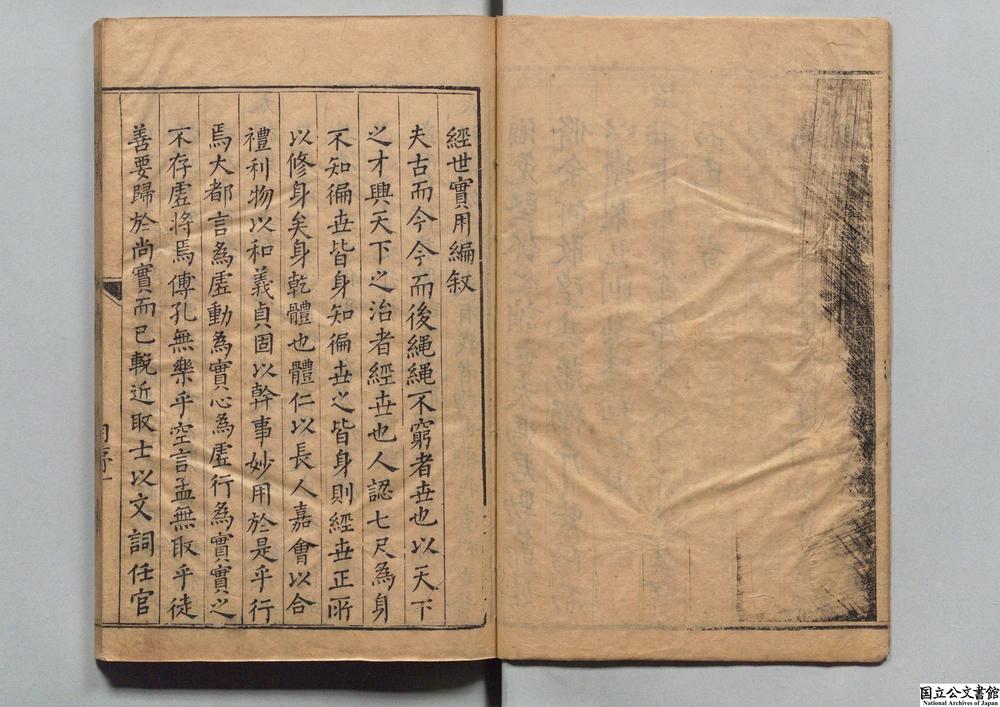 經世實用編叙
夫古而今今而後繩繩不窮者世也以天下
之才興天下之治者經世也人認七尺為身
不知徧世皆身知徧世之皆身則經世正所
以修身矣身乾體也體仁以長人嘉會以合
禮利物以和義貞固以幹事妙用於是乎行
焉大都言為虛動為實心為虛行為實實之
不存虛將焉傅孔無樂乎空言孟無取乎徒
善要歸於尚實而已輓近取士以文詞任官
国立公文書館
National Archives of Japan